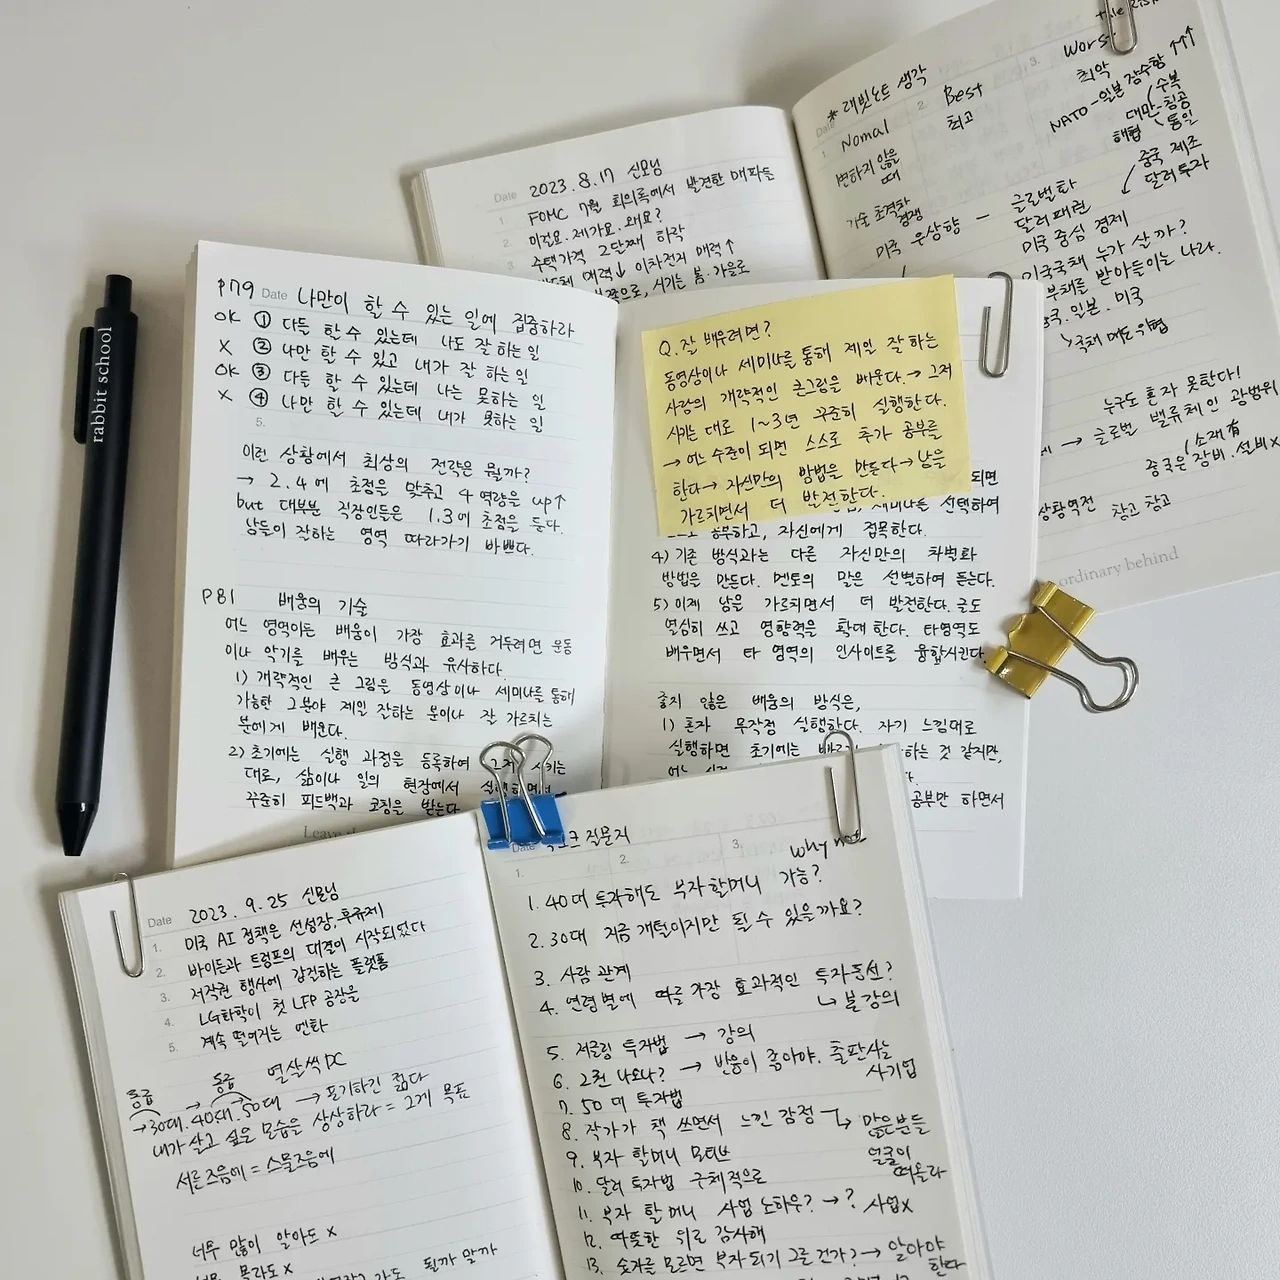 rabbit school
Date 2023.8.17 신모님
1. FOMC 7월 회의록에서 발견한 매파들
2. 이걸요.제가요.왜요?
3. 주택가격 2단째 하락
매력↓ 이차전지 매력↑
시기는 봄.가을로
* 래빗노트 생각
Date
Nomal
변하지 않을
때
2. Best
최고
3. Worst
최악
NATO-일본 잠수함 ↑↑↑
대만
해협
수복
침공
통일
중국 제조
달러투자
기술 초격차
경쟁
미국 우상향 - 글로벌화
달러패권
미국 중심 경제
미국국채 누가 살까?
부채를 받아들이는 나라.
일본.미국
국채 매도위협
누구도 혼자 못한다!
→ 글로벌 밸류체인 광범위
소재有
중국은 장비.설비x
상황역전 창고 참고
ordinary behind
P79 Date 나만이 할 수 있는 일에 집중하라
OK ① 다들 할 수 있는데 나도 잘 하는 일
X ② 나만 할 수 있고 내가 잘 하는 일
OK ③ 다들 할 수 있는데 나는 못하는 일
X ④ 나만 할 수 있는데 내가 못하는 일
5.
이런 상황에서 최상의 전략은 뭘까?
→ 2.4에 초점을 맞추고 4 역량을 up↑
but 대부분 직장인들은 1.3에 초점을 둔다.
남들이 잘하는 영역 따라가기 바쁘다.
P81 배움의 기술
어느 영역이든 배움이 가장 효과를 거두려면 운동
이나 악기를 배우는 방식과 유사하다.
1) 개략적인 큰 그림을 동영상이나 세미나를 통해
가능한 그분야 제일 잘하는 분이나 잘 가르치는
분에게 배운다.
2) 초기에는 실행 과정을 등록하여 그저 시키는
대로, 삶이나 일의 현장에서 실행하면서
꾸준히 피드백과 코칭을 받는다
Leave
Q. 잘 배우려면?
동영상이나 세미나를 통해 제일 잘 하는
사람의 개략적인 큰그림을 배운다.→ 그저
시키는 대로 1~3년 꾸준히 실행한다.
→ 어느 수준이 되면 스스로 추가 공부를
한다→ 자신만의 방법을 만든다→ 남을
가르치면서 더 발전한다.
되면
세미나를 선택하여
공부하고, 자신에게 접목한다.
4) 기존 방식과는 다른 자신만의 차별화
방법을 만든다. 멘토의 말은 선별하여 듣는다.
5) 이제 남을 가르치면서 더 발전한다. 글도
열심히 쓰고 영향력을 확대한다. 타영역도
배우면서 타 영역의 인사이트를 융합시킨다.
좋지 않은 배움의 방식은,
1) 혼자 무작정 실행한다. 자기 느낌대로
실행하면 초기에는 하는 것 같지만,
공부만 하면서
Date 2023.9.25 신모님
1. 미국 AI 정책은 선성장, 후규제
2. 바이든과 트럼프의 대결이 시작되었다
3. 저작권 행사에 감전하는 플랫폼
4. LG화학이 첫 LFP 공장을
5. 계속 떨어지는 엔화
동급 동급 열살씩 DC
→30대.40대.50대 → 포기하긴 젊다
내가 살고 싶은 모습을 상상하라 = 그게 목표
서른즈음에 = 스물즈음에
너무 많이 알아도 x
너무 몰라도 x
될까 말까
Date 질문지
1. 2. 3. why not
1. 40대 투자해도 부자할머니 가능?
2. 30대 지금 개털이지만 될 수 있을까요?
3. 사람 관계
4. 연령별에 따른 가장 효과적인 투자동선?
↳ 불강의
5. 저클링 투자법 → 강의
6. 2권 나오나? → 반응이 좋아야. 출판사는
사기업
7. 50대 투자법
8. 작가가 책 쓰면서 느낀 감정 → 많은분들
얼굴이
떠올라
9. 부자 할머니 모티브
10. 달러 투자법 구체적으로
11. 부자 할머니 사업 노하우? →? 사업x
12. 따뜻한 위로 감사해
13. 숫자를 모르면 부자되기 그른건가? → 알아야
한다